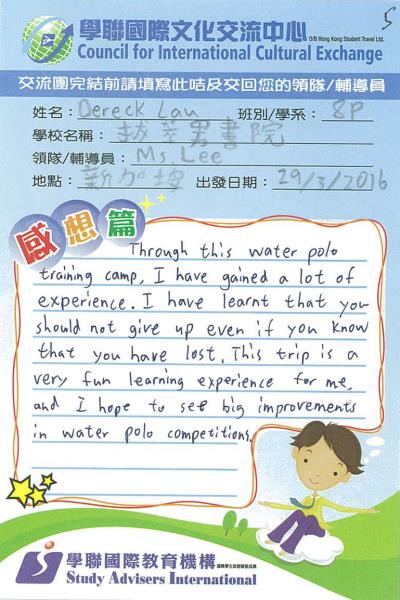 5
學聯國際文化交流中心 O/B Hong Kong Student Travel Ltd.
Council for International Cultural Exchange
交流團完結前請填寫此咭及交回您的領隊/輔導員
姓名：Dereck Lau 班別/學系：8P
學校名稱：拔萃男書院
領隊/輔導員：Ms. Lee
地點：新加坡 出發日期：29/3/2016
感想篇
Through this water polo
training camp, I have gained a lot of
experience. I have learnt that you
should not give up even if you know
that you have lost. This trip is a
very fun learning experience for me,
and I hope to see big improvements
in water polo competitions.
學聯國際教育機構
Study Advisers International